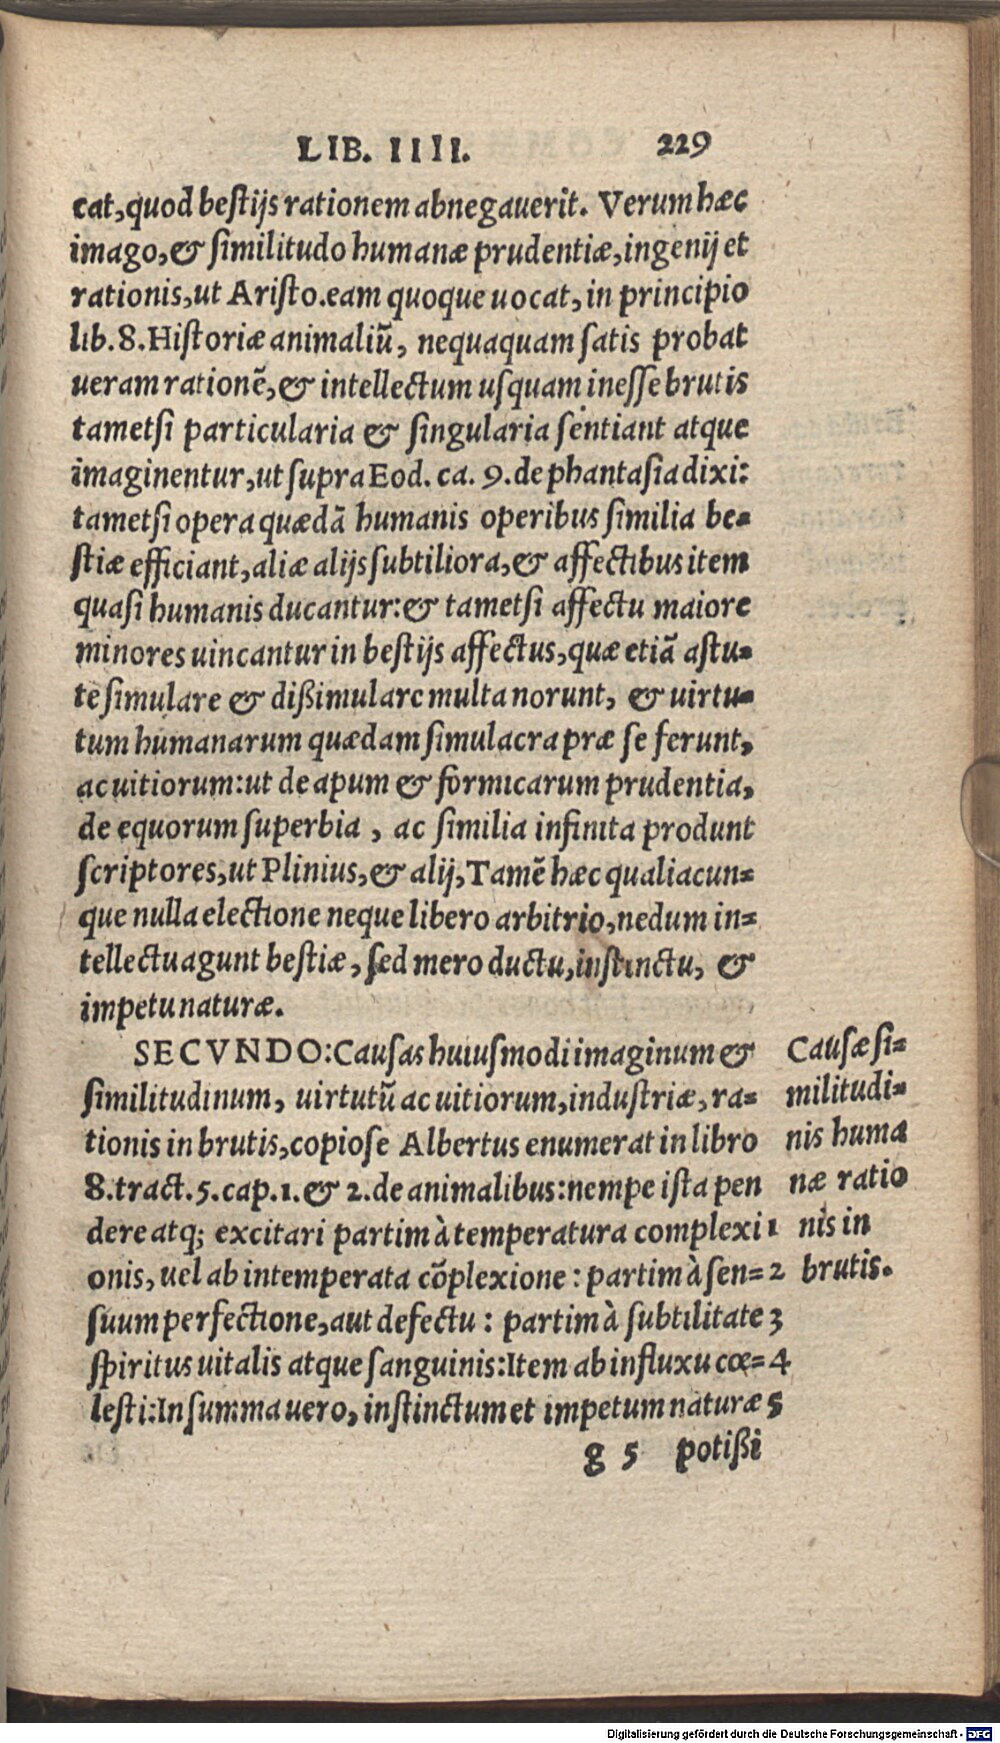 LIB. IIII. 229
cat, quod bestijs rationem abnegauerit. Verum hæc
imago, & similitudo humanæ prudentiæ, ingenij et
rationis, ut Aristo. eam quoque uocat, in principio
lib. 8. Historiæ animaliũ, nequaquam satis probat
ueram rationẽ, & intellectum usquam inesse brutis
tametsi particularia & singularia sentiant atque
imaginentur, ut supra Eod. ca. 9. de phantasia dixi:
tametsi opera quædã humanis operibus similia be=
stiæ efficiant, aliæ alijs subtiliora, & affectibus item
quasi humanis ducantur: & tametsi affectu maiore
minores uincantur in bestijs affectus, quæ etiã astu=
te simulare & dißimulare multa norunt, & uirtu=
tum humanarum quædam simulacra præ se ferunt,
ac uitiorum: ut de apum & formicarum prudentia,
de equorum superbia, ac similia infinita produnt
scriptores, ut Plinius, & alij, Tamẽ hæc qualiacun=
que nulla electione neque libero arbitrio, nedum in=
tellectu agunt bestiæ, sed mero ductu, instinctu, &
impetu naturæ.
SECVNDO: Causas huiusmodi imaginum &
similitudinum, uirtutũ ac uitiorum, industriæ, ra=
tionis in brutis, copiose Albertus enumerat in libro
8. tract. 5. cap. 1. & 2. de animalibus: nempe ista pen
dere atq; excitari partim à temperatura complexi 1
onis, uel ab intemperata cõplexione: partim à sen= 2
suum perfectione, aut defectu: partim à subtilitate 3
spiritus uitalis atque sanguinis: Item ab influxu cœ= 4
lesti: In summa uero, instinctum et impetum naturæ 5
g 5 potißi
Causæ si=
militudi=
nis huma
næ ratio
nis in
brutis.
Digitalisierung gefördert durch die Deutsche Forschungsgemeinschaft - DFG